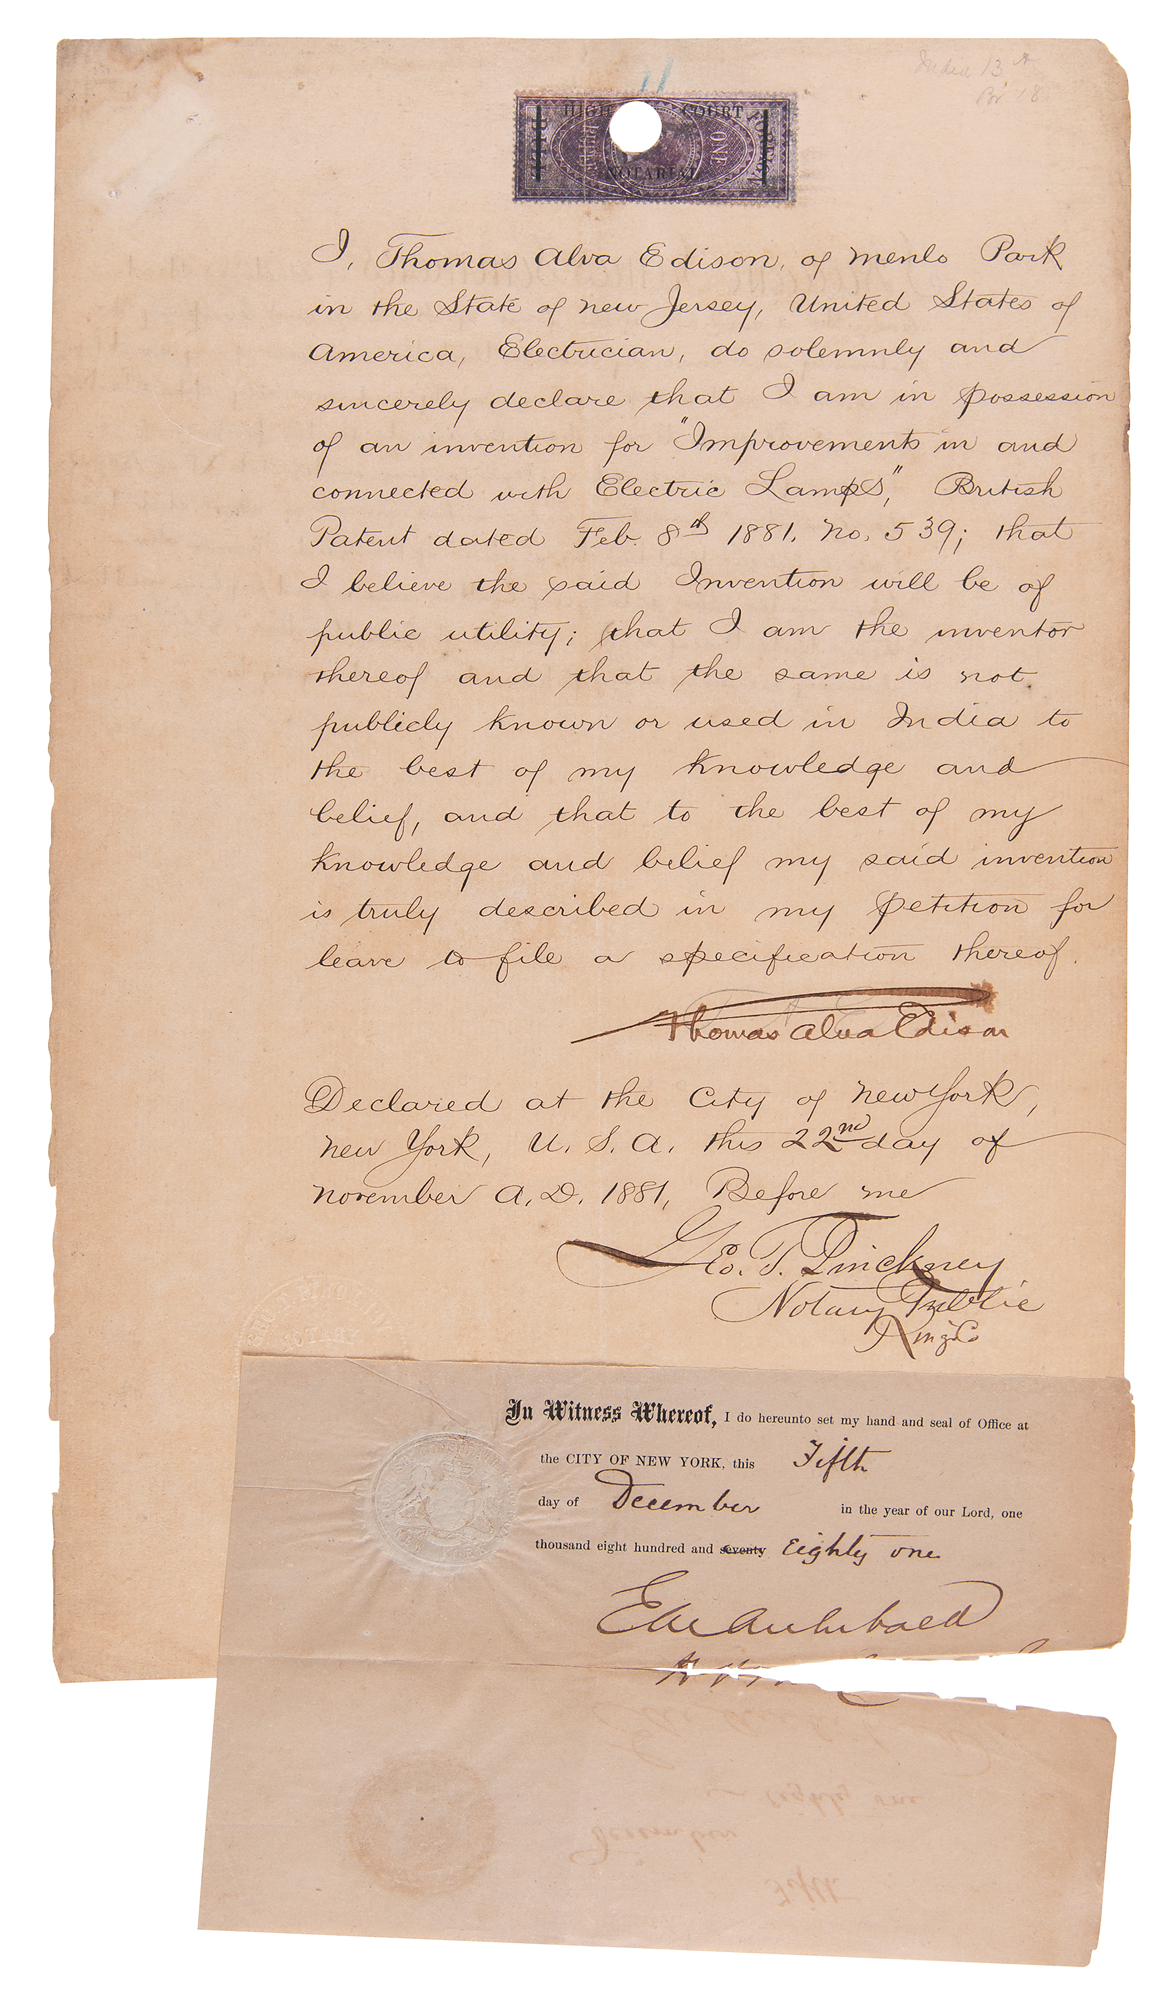 India 13
HIGH COURT
ONE
NOTARIAL
I, Thomas Alva Edison, of Menlo Park
in the State of New Jersey, United States of
America, Electrician, do solemnly and
sincerely declare that I am in possession
of an invention for "Improvements in and
connected with Electric Lamps", British
Patent dated Feb. 8th 1881. No. 539; that
I believe the said Invention will be of
public utility; that I am the inventor
thereof and that the same is not
publicly known or used in India to
the best of my knowledge and
belief, and that to the best of my
knowledge and belief my said invention
is truly described in my petition for
leave to file a specification thereof.
Thomas Alva Edison
Declared at the City of New York,
New York, U. S. A. this 22nd day of
November A. D. 1881, Before me
Geo. T. Pinckney
Notary Public
Kings Co
In Witness Whereof, I do hereunto set my hand and seal of Office at
the CITY OF NEW YORK, this Fifth
day of December in the year of our Lord, one
thousand eight hundred and seventy eighty one
E M Archibald